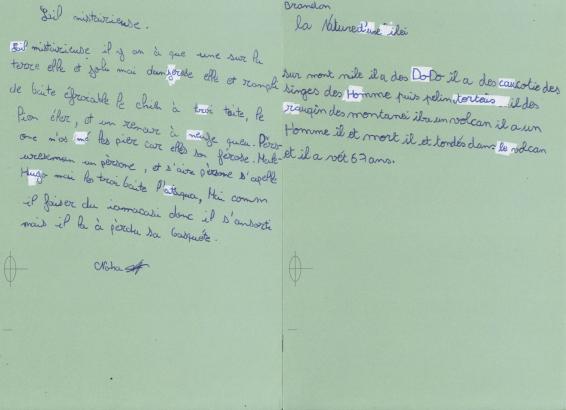 L'il mistairieuse.
L'il mistairieuse il y an à que une sur la
terre elle et joli mai dangerese elle et rampli
de baite éfroiable le chien à troi taite, le
lion éler, et un renair à neufe queu. Pers
one n'as mé les pier car elles son férose. Male
ureseman un pèrsone, et s'aire pèrsone s'apelle
Hugo mai les troi baite l'ataqua, Mai comm
il faiser du iamacasi donc il s'ansorti
mais il la à pèrdu sa casquéte.
Noha
Brandon
la Nature d'une ilei
sur mont nile il a des DoDo il a des caucotie des
singes des Homme puis pelin tortois il des
raugin des montanei il va un volcan il a un
Homme il et mort il et tondés dans le volcan
et il a vét 67 ans.